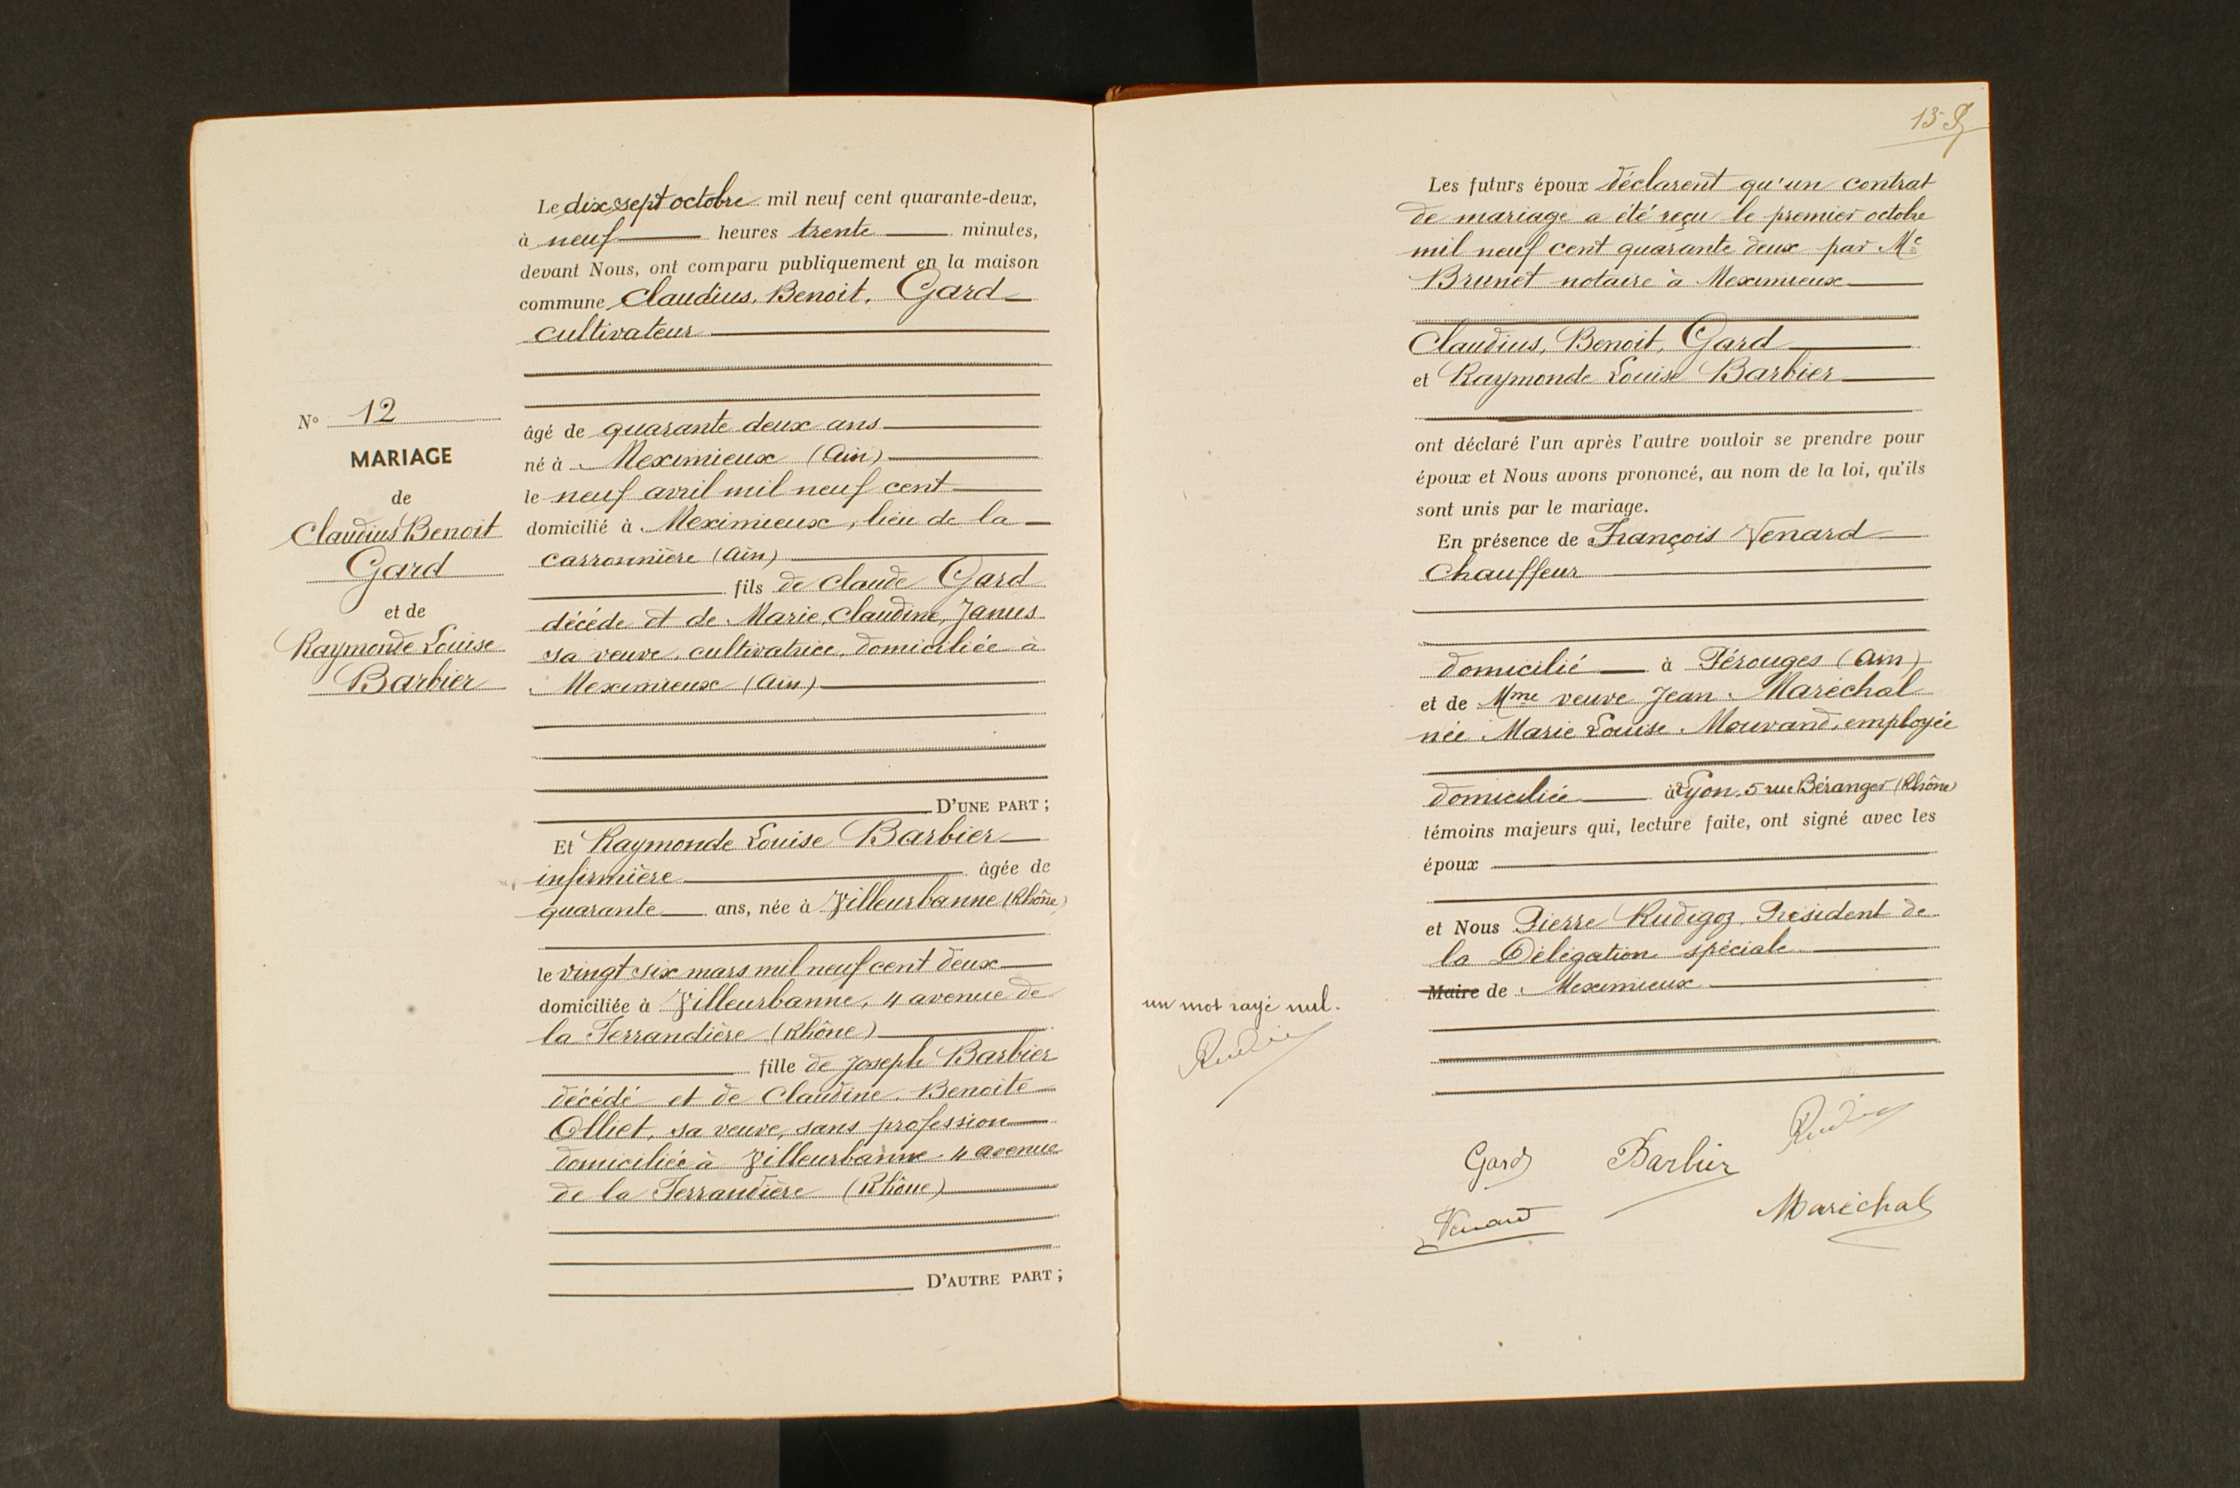 Le dix sept octobre mil neuf cent quarante-deux,
à neuf heures trente minutes,
devant Nous, ont comparu publiquement en la maison
commune Claudius, Benoit, Gard
cultivateur
N° 12
MARIAGE
de
Claudius Benoit
Gard
et de
Raymonde Louise
Barbier
âgé de quarante deux ans
né à Meximieux (Ain)
le neuf avril mil neuf cent
domicilié à Meximieux, lieu de la
carronnière (Ain)
fils de Claude Gard
décédé et de Marie, Claudine, Janus
sa veuve, cultivatrice, domiciliée à
Meximieux (Ain)
D'UNE PART ;
Et Raymonde Louise Barbier
infirmière âgée de
quarante ans, née à Villeurbanne (Rhône)
le vingt six mars mil neuf cent deux
domiciliée à Villeurbanne, 4 avenue de
la Ferrandière (Rhône)
fille de Joseph Barbier
décédé et de Claudine, Benoite
Olliet, sa veuve, sans profession
domiciliée à Villeurbanne. 4 avenue
de la Ferrandière (Rhône)
D'AUTRE PART ;
13
Les futurs époux déclarent qu'un contrat
de mariage a été reçu le premier octobre
mil neuf cent quarante deux par Me
Brunet notaire à Meximieux
Claudius, Benoit, Gard
et Raymonde Louise Barbier
ont déclaré l'un après l'autre vouloir se prendre pour
époux et Nous avons prononcé, au nom de la loi, qu'ils
sont unis par le mariage.
En présence de François Venard
Chauffeur
domicilié à Pérouges (Ain)
et de Mme veuve Jean Maréchal
née Marie Louise Mouvand, employée
domiciliée à Lyon. 5 rue Béranger (Rhône)
témoins majeurs qui, lecture faite, ont signé avec les
époux
et Nous Pierre Rudigoz, Président de
la Délégation spéciale
Maire de Meximieux
un mot rayé nul.
Gard Barbier
Venard Maréchal